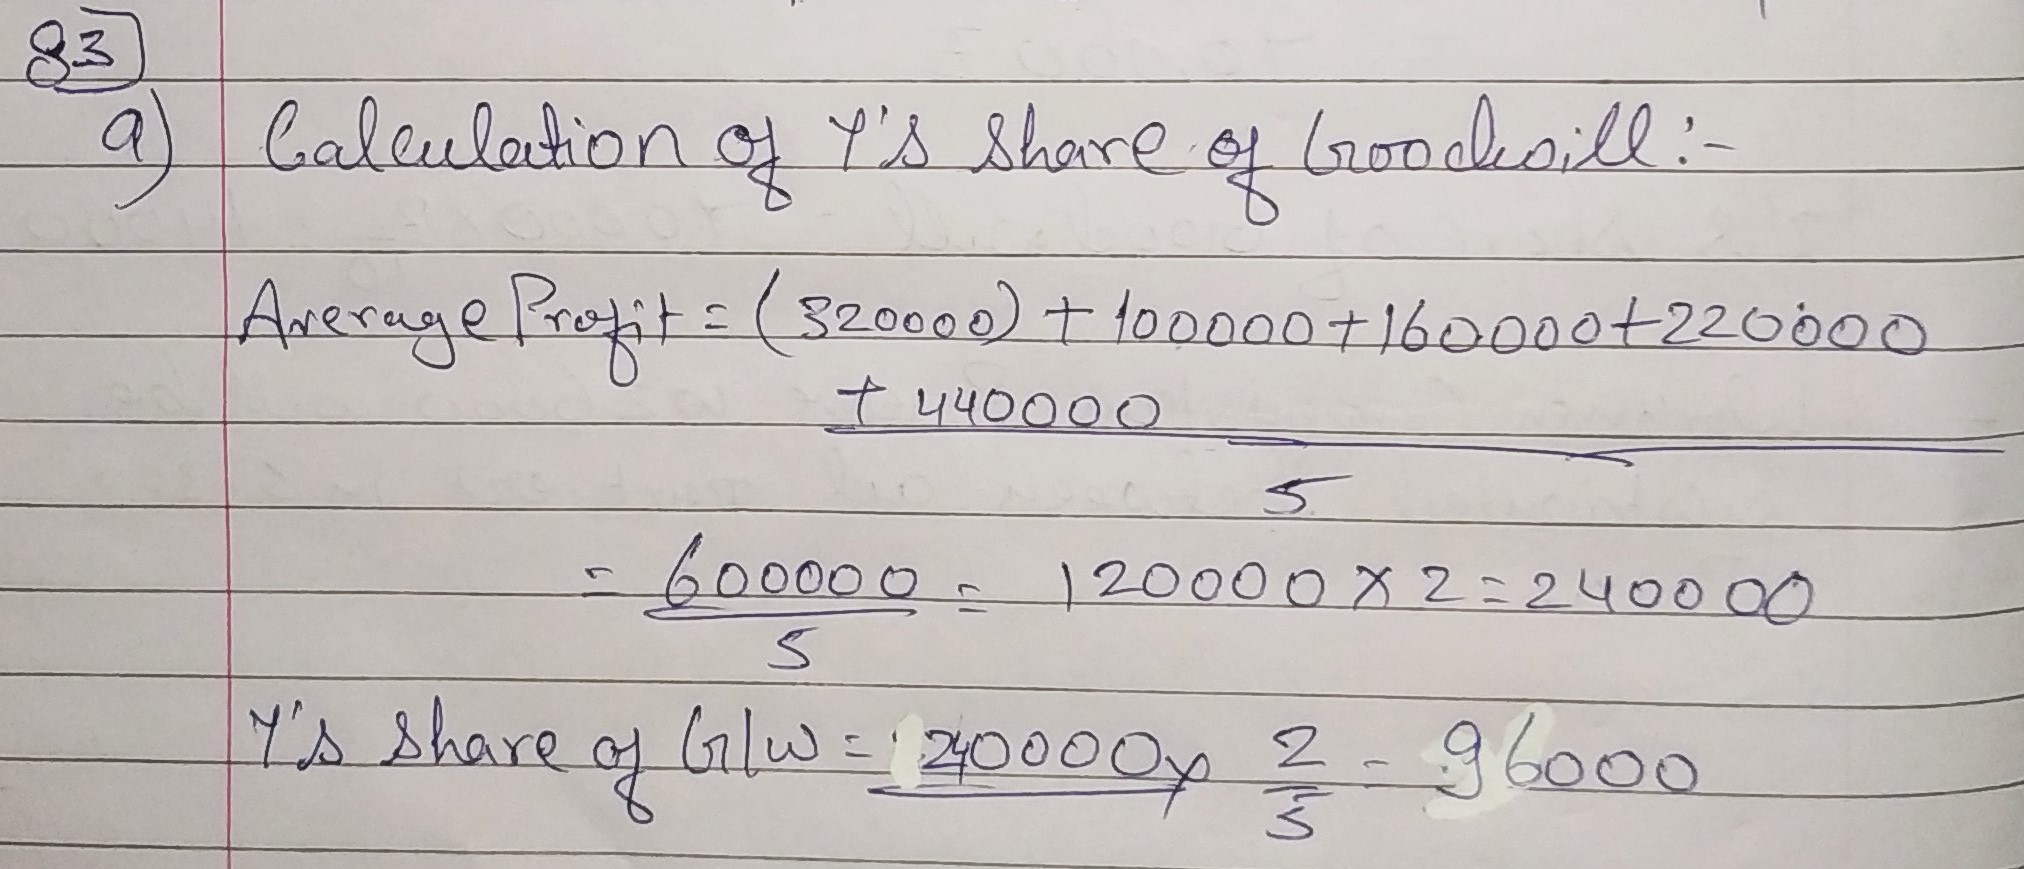 83
a) Calculation of Y's Share of Goodwill :-
Average Profit = (320000) + 100000 + 160000 + 220000
+ 440000
5
= 600000 = 120000 x 2 = 240000
5
Y's Share of G/W = 240000 x 2 - 96000
5